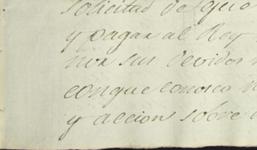 solicitud de que
y pagar al Rey
sus devidos
conque conosco
y accion sobre